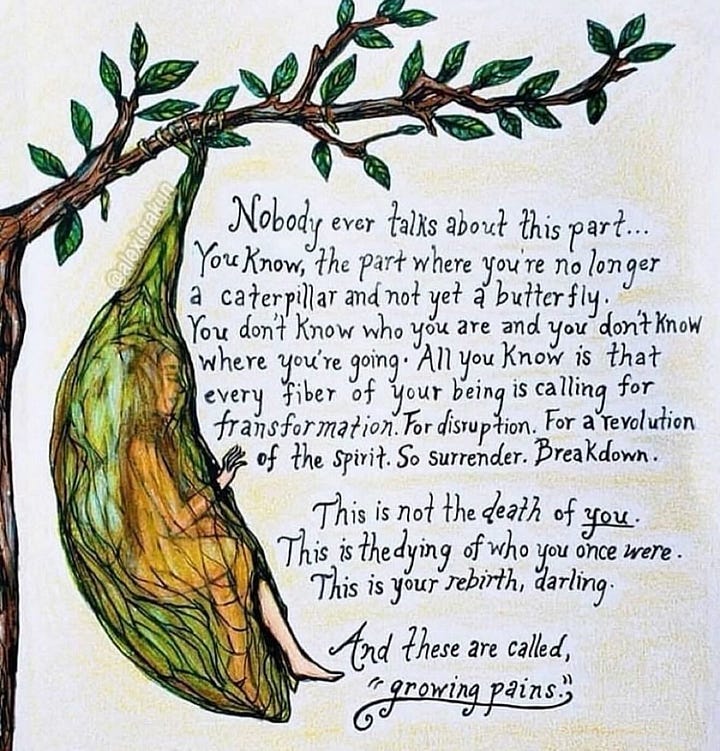 @alexisrakun
Nobody ever talks about this part...
You Know, the part where you're no longer
a caterpillar and not yet a butterfly.
You don't Know who you are and you don't Know
where you're going. All you Know is that
every fiber of your being is calling for
transformation. For disruption. For a revolution
of the spirit. So surrender. Breakdown.
This is not the death of you.
This is the dying of who you once were.
This is your rebirth, darling.
And these are called,
"growing pains."